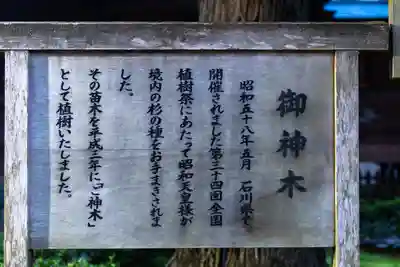 御神木
昭和五十八年五月　石川県で
開催されました第三十四回全国
植樹祭にあたって昭和天皇様が
境内の杉の種をお手まきされま
した。
その苗木を平成三年に「神木」
として植樹いたしました。